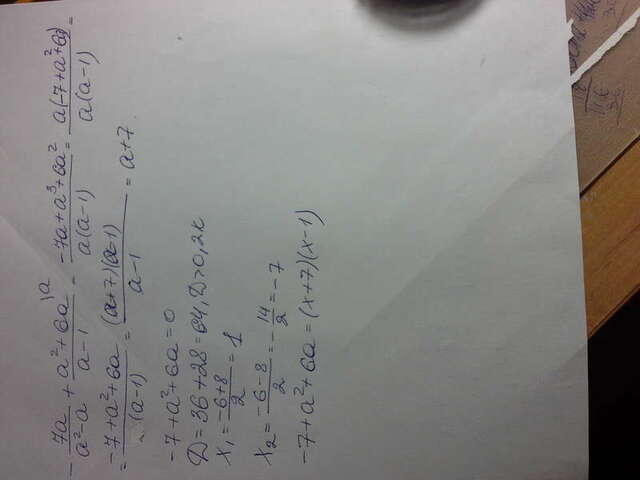 -7a/(a²-a) + (a²+6a)/(a-1) \a = (-7a+a³+6a²)/(a(a-1)) = a(-7+a²+6a)/(a(a-1)) =
= (-7+a²+6a)/(a-1) = (a+7)(a-1)/(a-1) = a+7
-7+a²+6a=0
D=36+28=64, D>0, 2к
x₁=(-6+8)/2=1
x₂=(-6-8)/2=-14/2=-7
-7+a²+6a=(x+7)(x-1)